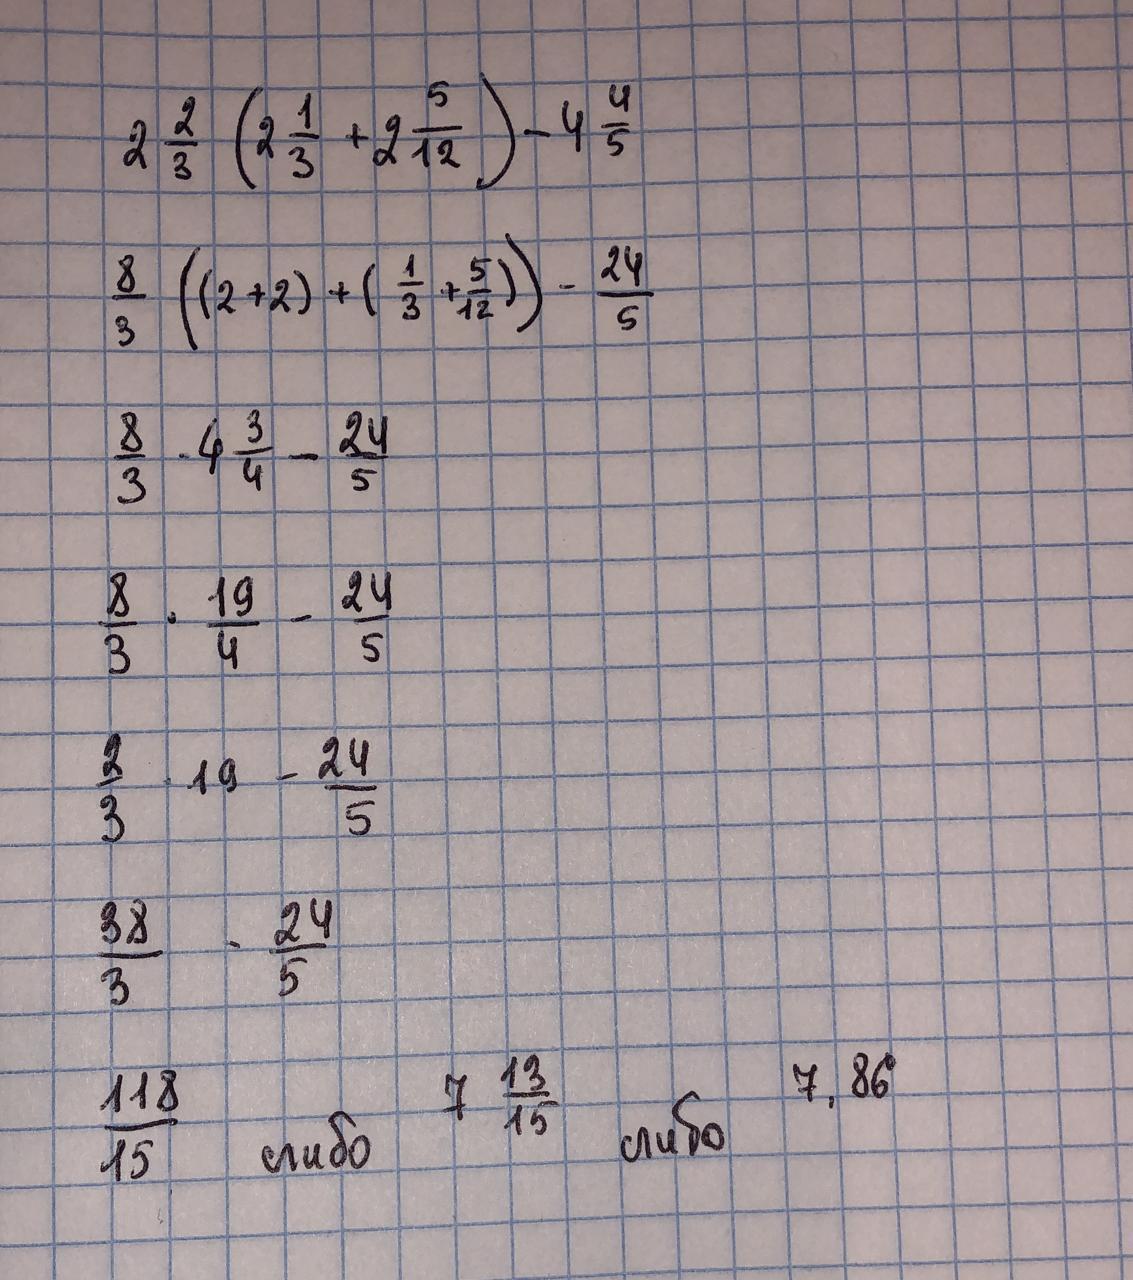 2 2/3 (2 1/3 + 2 5/12) - 4 4/5
8/3 ((2+2) + (1/3 + 5/12)) - 24/5
8/3 · 4 3/4 - 24/5
8/3 · 19/4 - 24/5
2/3 · 19 - 24/5
38/3 - 24/5
118/15 либо 7 13/15 либо 7,86